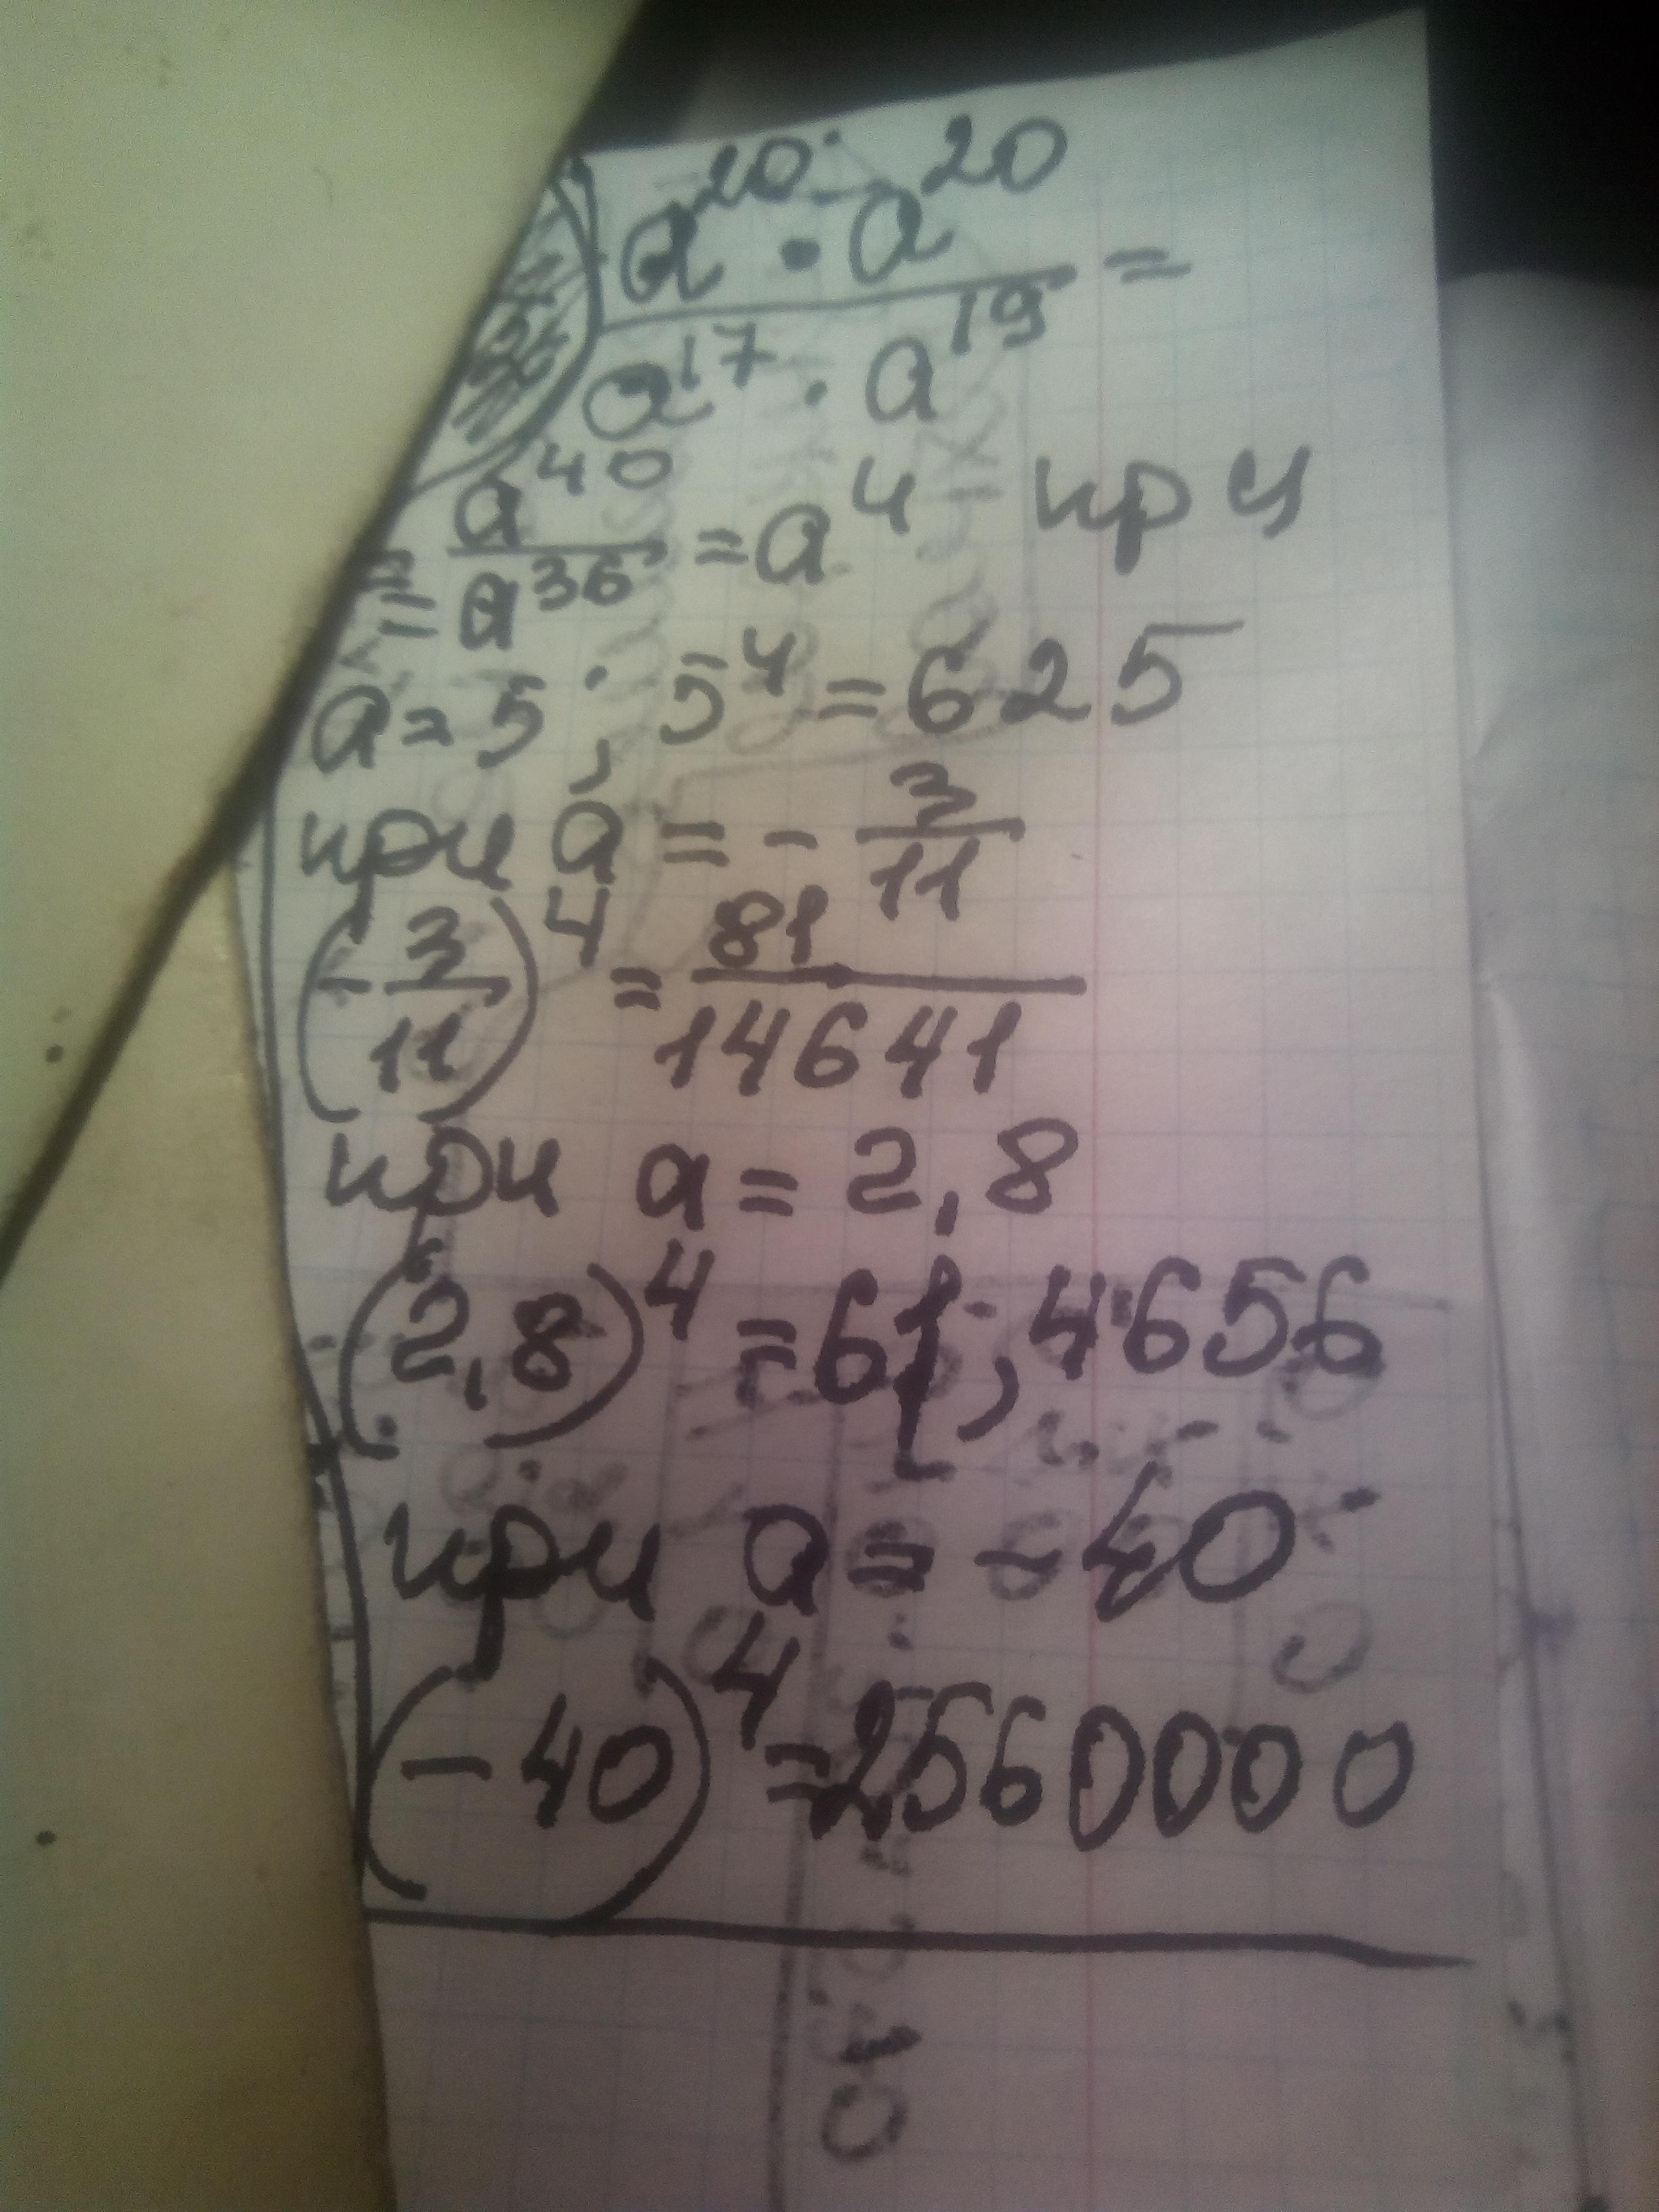 a²⁰ · a²⁰ =
a¹⁷ · a¹⁹
= a⁴⁰ / a³⁶ = a⁴ при
a = 5 ; 5⁴ = 625
при a = - 3/11
(- 3/11)⁴ = 81/14641
при a = 2,8
(2,8)⁴ = 61,4656
при a = -40
(-40)⁴ = 2560000